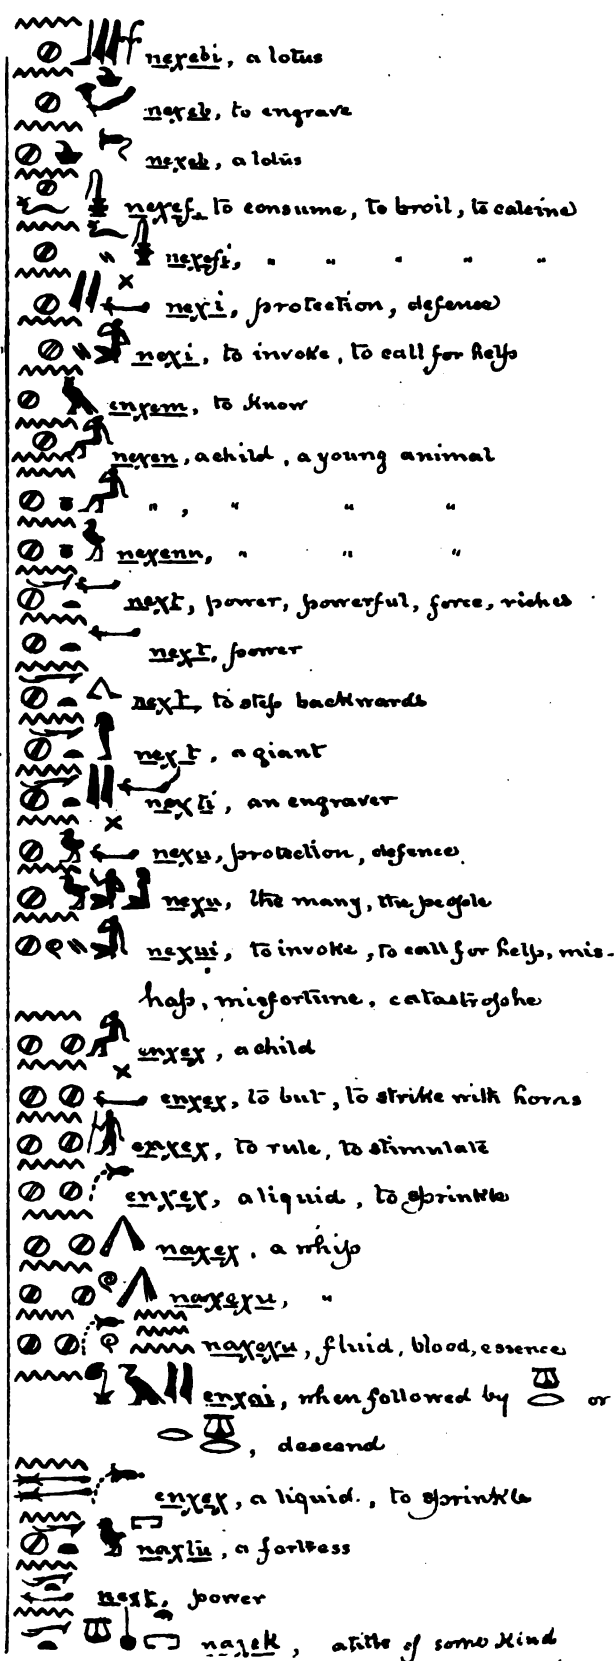 nexebi, a lotus
nexeb, to engrave
nexeb, a lotus
nexef, to consume, to broil, to calcine
nexefi, " " " " "
nexi, protection, defence
nexi, to invoke, to call for help
enxem, to know
nexen, a child, a young animal
" , " " "
nexenn, " " "
next, power, powerful, force, riches
next, power
next, to step backwards
next, a giant
nexti, an engraver
nexu, protection, defence.
nexu, the many, the people
nexui, to invoke, to call for help, mis-
hap, misfortune, catastrophe
unxex, a child
enxex, to but, to strike with horns
enxex, to rule, to stimulate
enxex, a liquid, to sprinkle
naxex, a whip
naxexu, "
naxexu, fluid, blood, essence
enxai, when followed by or
, descend
enxex, a liquid., to sprinkle
naxtu, a fortress
next, power
naxek, a title of some kind